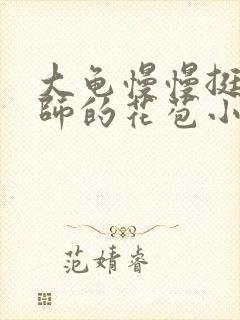 大龟慢慢挺
师的花苞小
范婧睿